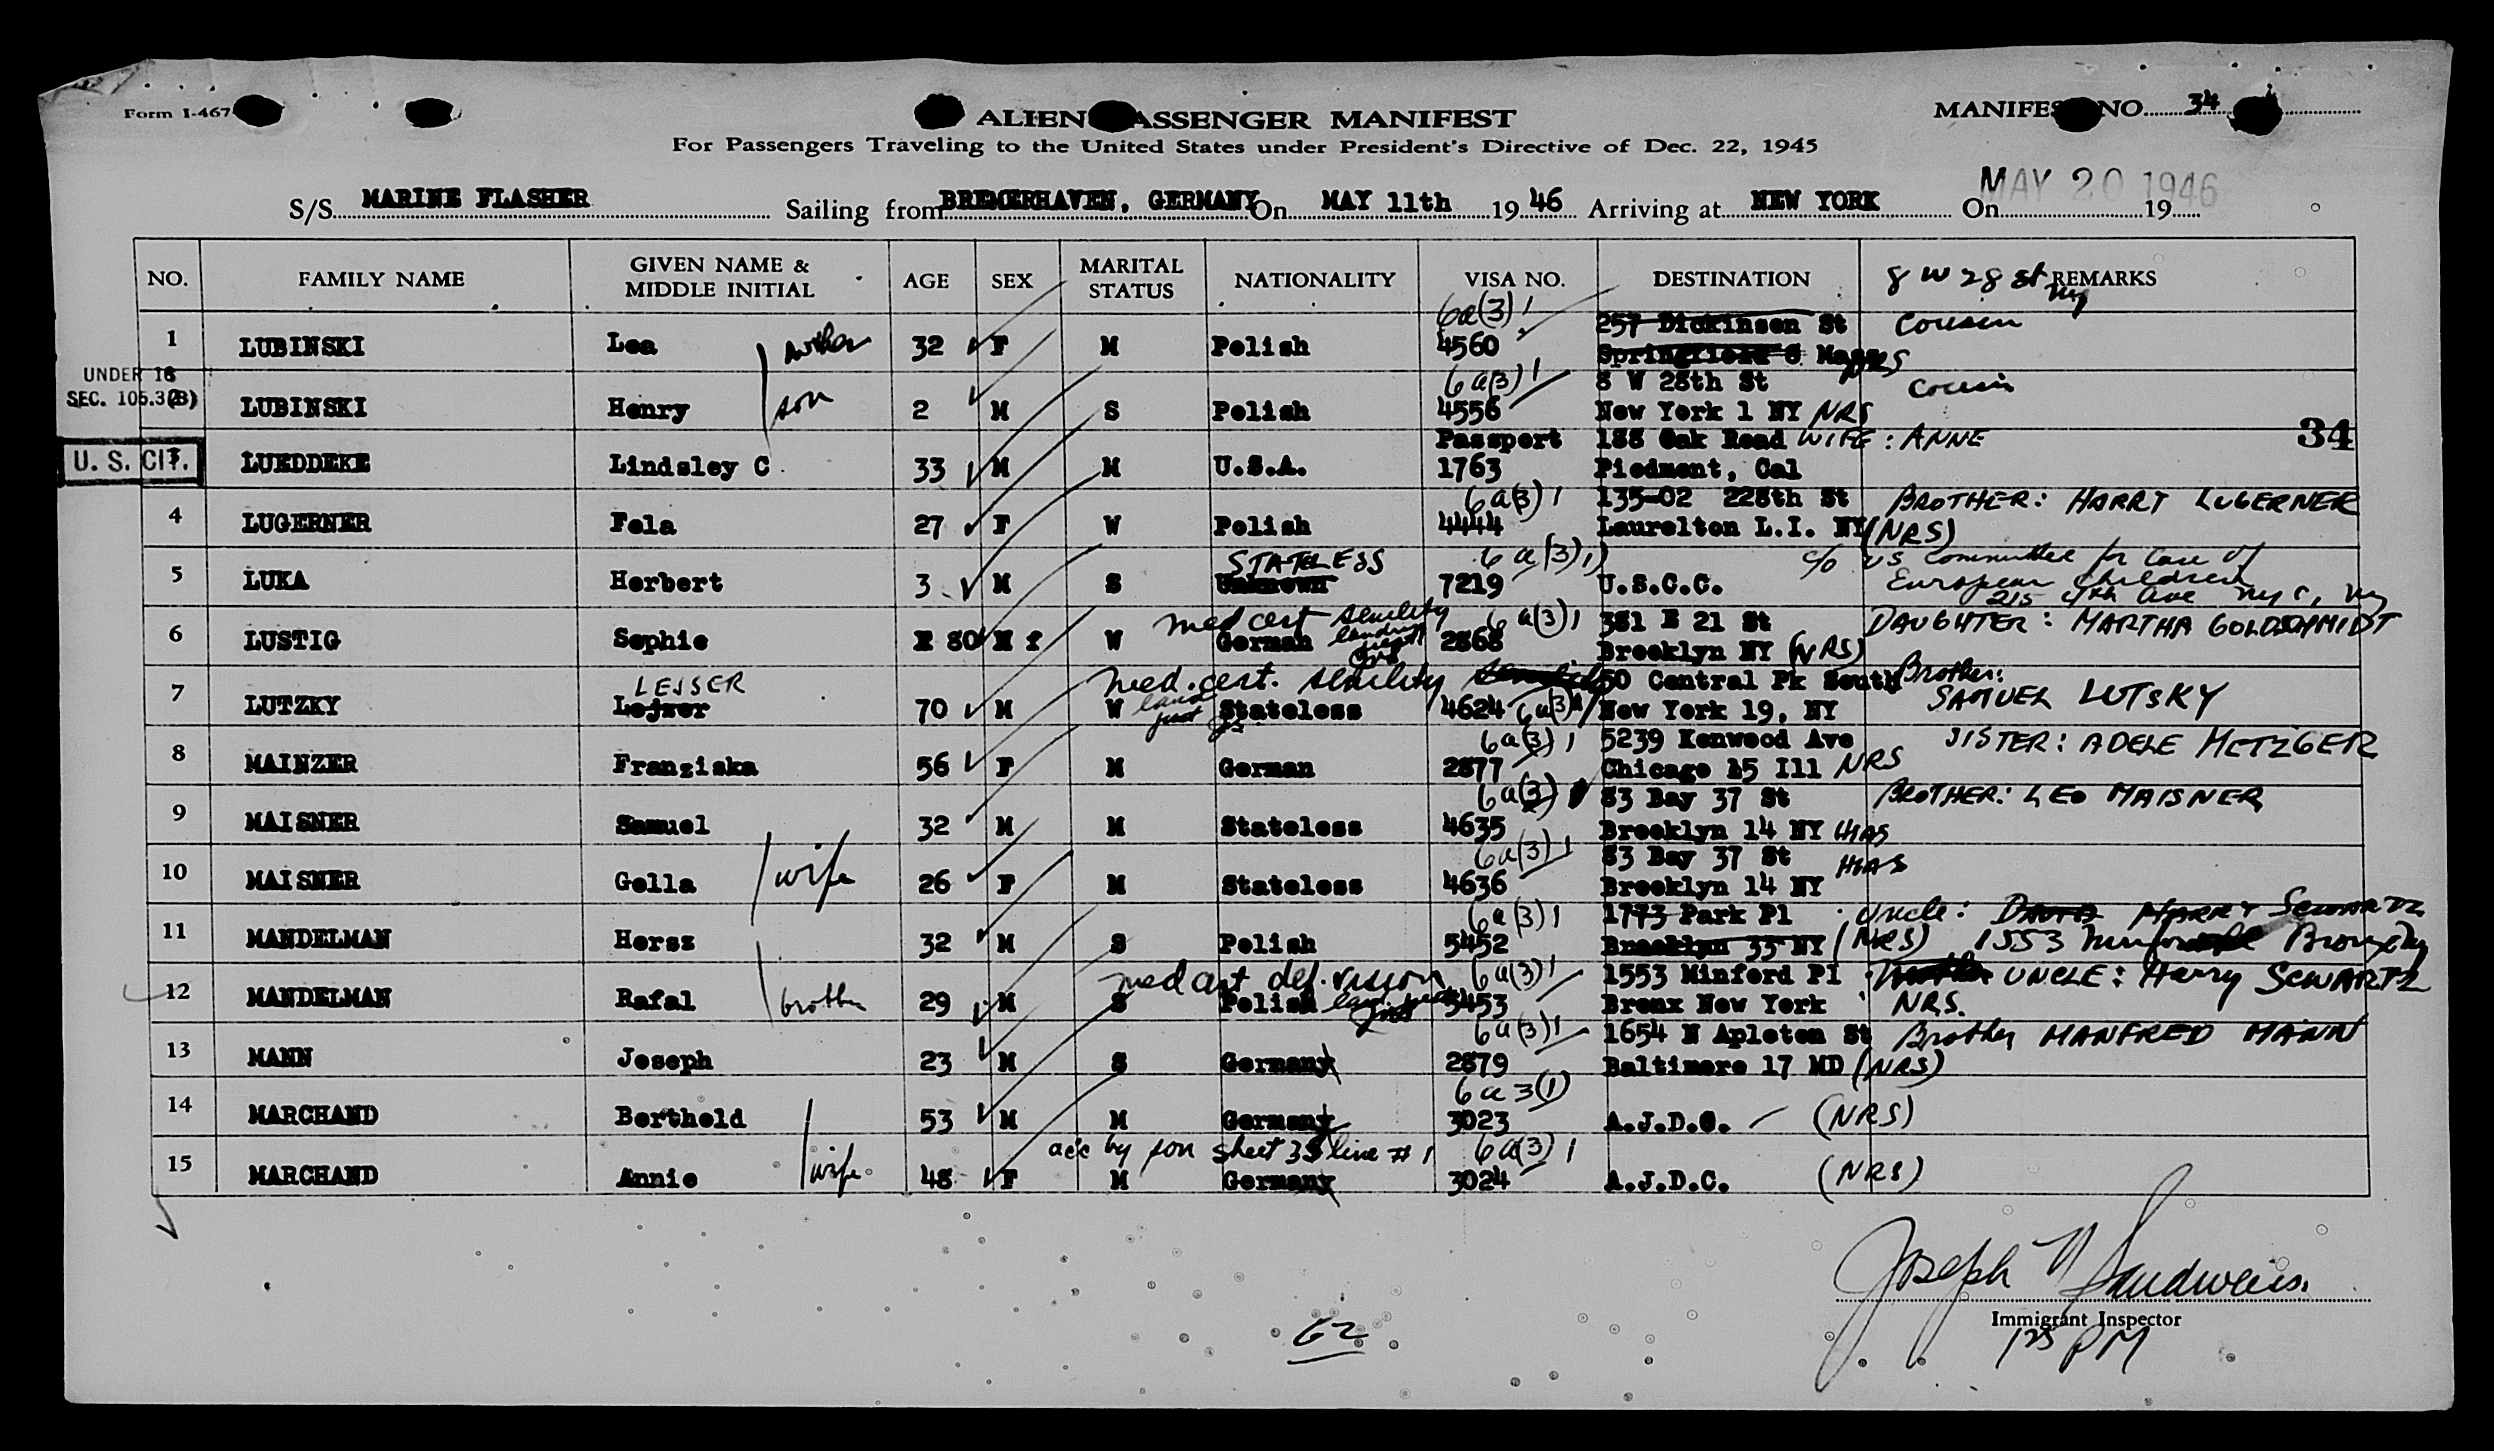 Form I-467
ALIEN PASSENGER MANIFEST
MANIFEST NO. 34
For Passengers Traveling to the United States under President's Directive of Dec. 22, 1945
S/S MARINE FLASHER Sailing from BREMERHAVEN, GERMANY On MAY 11th 19 46 Arriving at NEW YORK On MAY 20 1946 19
NO. FAMILY NAME GIVEN NAME & MIDDLE INITIAL AGE SEX MARITAL STATUS NATIONALITY VISA NO. DESTINATION REMARKS
8 W 28 St NY
6a(3)1 257 Dickinson St Cousin
1 LUBINSKI Lea mother 32 F M Polish 4560 Springfield 8 Mass NRS
UNDER 16
SEC. 105.3(B)
6a(3)1 8 W 28th St Cousin
2 LUBINSKI Henry son 2 M S Polish 4556 New York 1 NY NRS
34
Passport 188 Oak Road WIFE: ANNE
U. S. CIT.
3 LUEDDEKE Lindsley C 33 M M U.S.A. 1763 Piedmont, Cal
6a(3)1 135-02 228th St BROTHER: HARRY LUGERNER
4 LUGERNER Fela 27 F W Polish 4444 Laurelton L.I. NY (NRS)
STATELESS 6a(3)1 c/o US Committee for Care of
5 LUKA Herbert 3 M S Unknown 7219 U.S.C.C. European Children
215 4th Ave NYC, NY
med cert senility 6a(3)1 381 E 21 St DAUGHTER: MARTHA GOLDSCHMIDT
6 LUSTIG Sophie X 80 M f W German 2868 Brooklyn NY (NRS)
LEJSER med. cert. senility 50 Central Pk South Brother:
7 LUTZKY Lejzer 70 M W Stateless 4624 6a(3)1 New York 19, NY SAMUEL LUTSKY
6a(3)1 5239 Kenwood Ave SISTER: ADELE METZGER
8 MAINZER Franziska 56 F M German 2877 Chicago 15 Ill NRS
6a(3)1 83 Bay 37 St BROTHER: LEO MAISNER
9 MAISNER Samuel 32 M M Stateless 4635 Brooklyn 14 NY HIAS
6a(3)1 83 Bay 37 St HIAS
10 MAISNER Golla wife 26 F M Stateless 4636 Brooklyn 14 NY
6a(3)1 1773 Park Pl Uncle: HARRY SCWARTZ
11 MANDELMAN Hersz 32 M S Polish 5452 Brooklyn 33 NY (NRS) 1553 Minford Pl Bronx NY
med cert def. vision 6a(3)1 1553 Minford Pl UNCLE: Harry SCWARTZ
12 MANDELMAN Rafal brother 29 M S Polish 5453 Bronx New York NRS.
6a(3)1 1654 N Apleton St Brother MANFRED MANN
13 MANN Joseph 23 M S Germany 2879 Baltimore 17 MD (NRS)
6a3(1)
14 MARCHAND Berthold 53 M M Germany 3023 A.J.D.C. (NRS)
acc by son sheet 35 line # 1 6a(3)1
15 MARCHAND Annie wife 48 F M Germany 3024 A.J.D.C. (NRS)
Joseph Sandweiss
Immigrant Inspector
125 PM
62